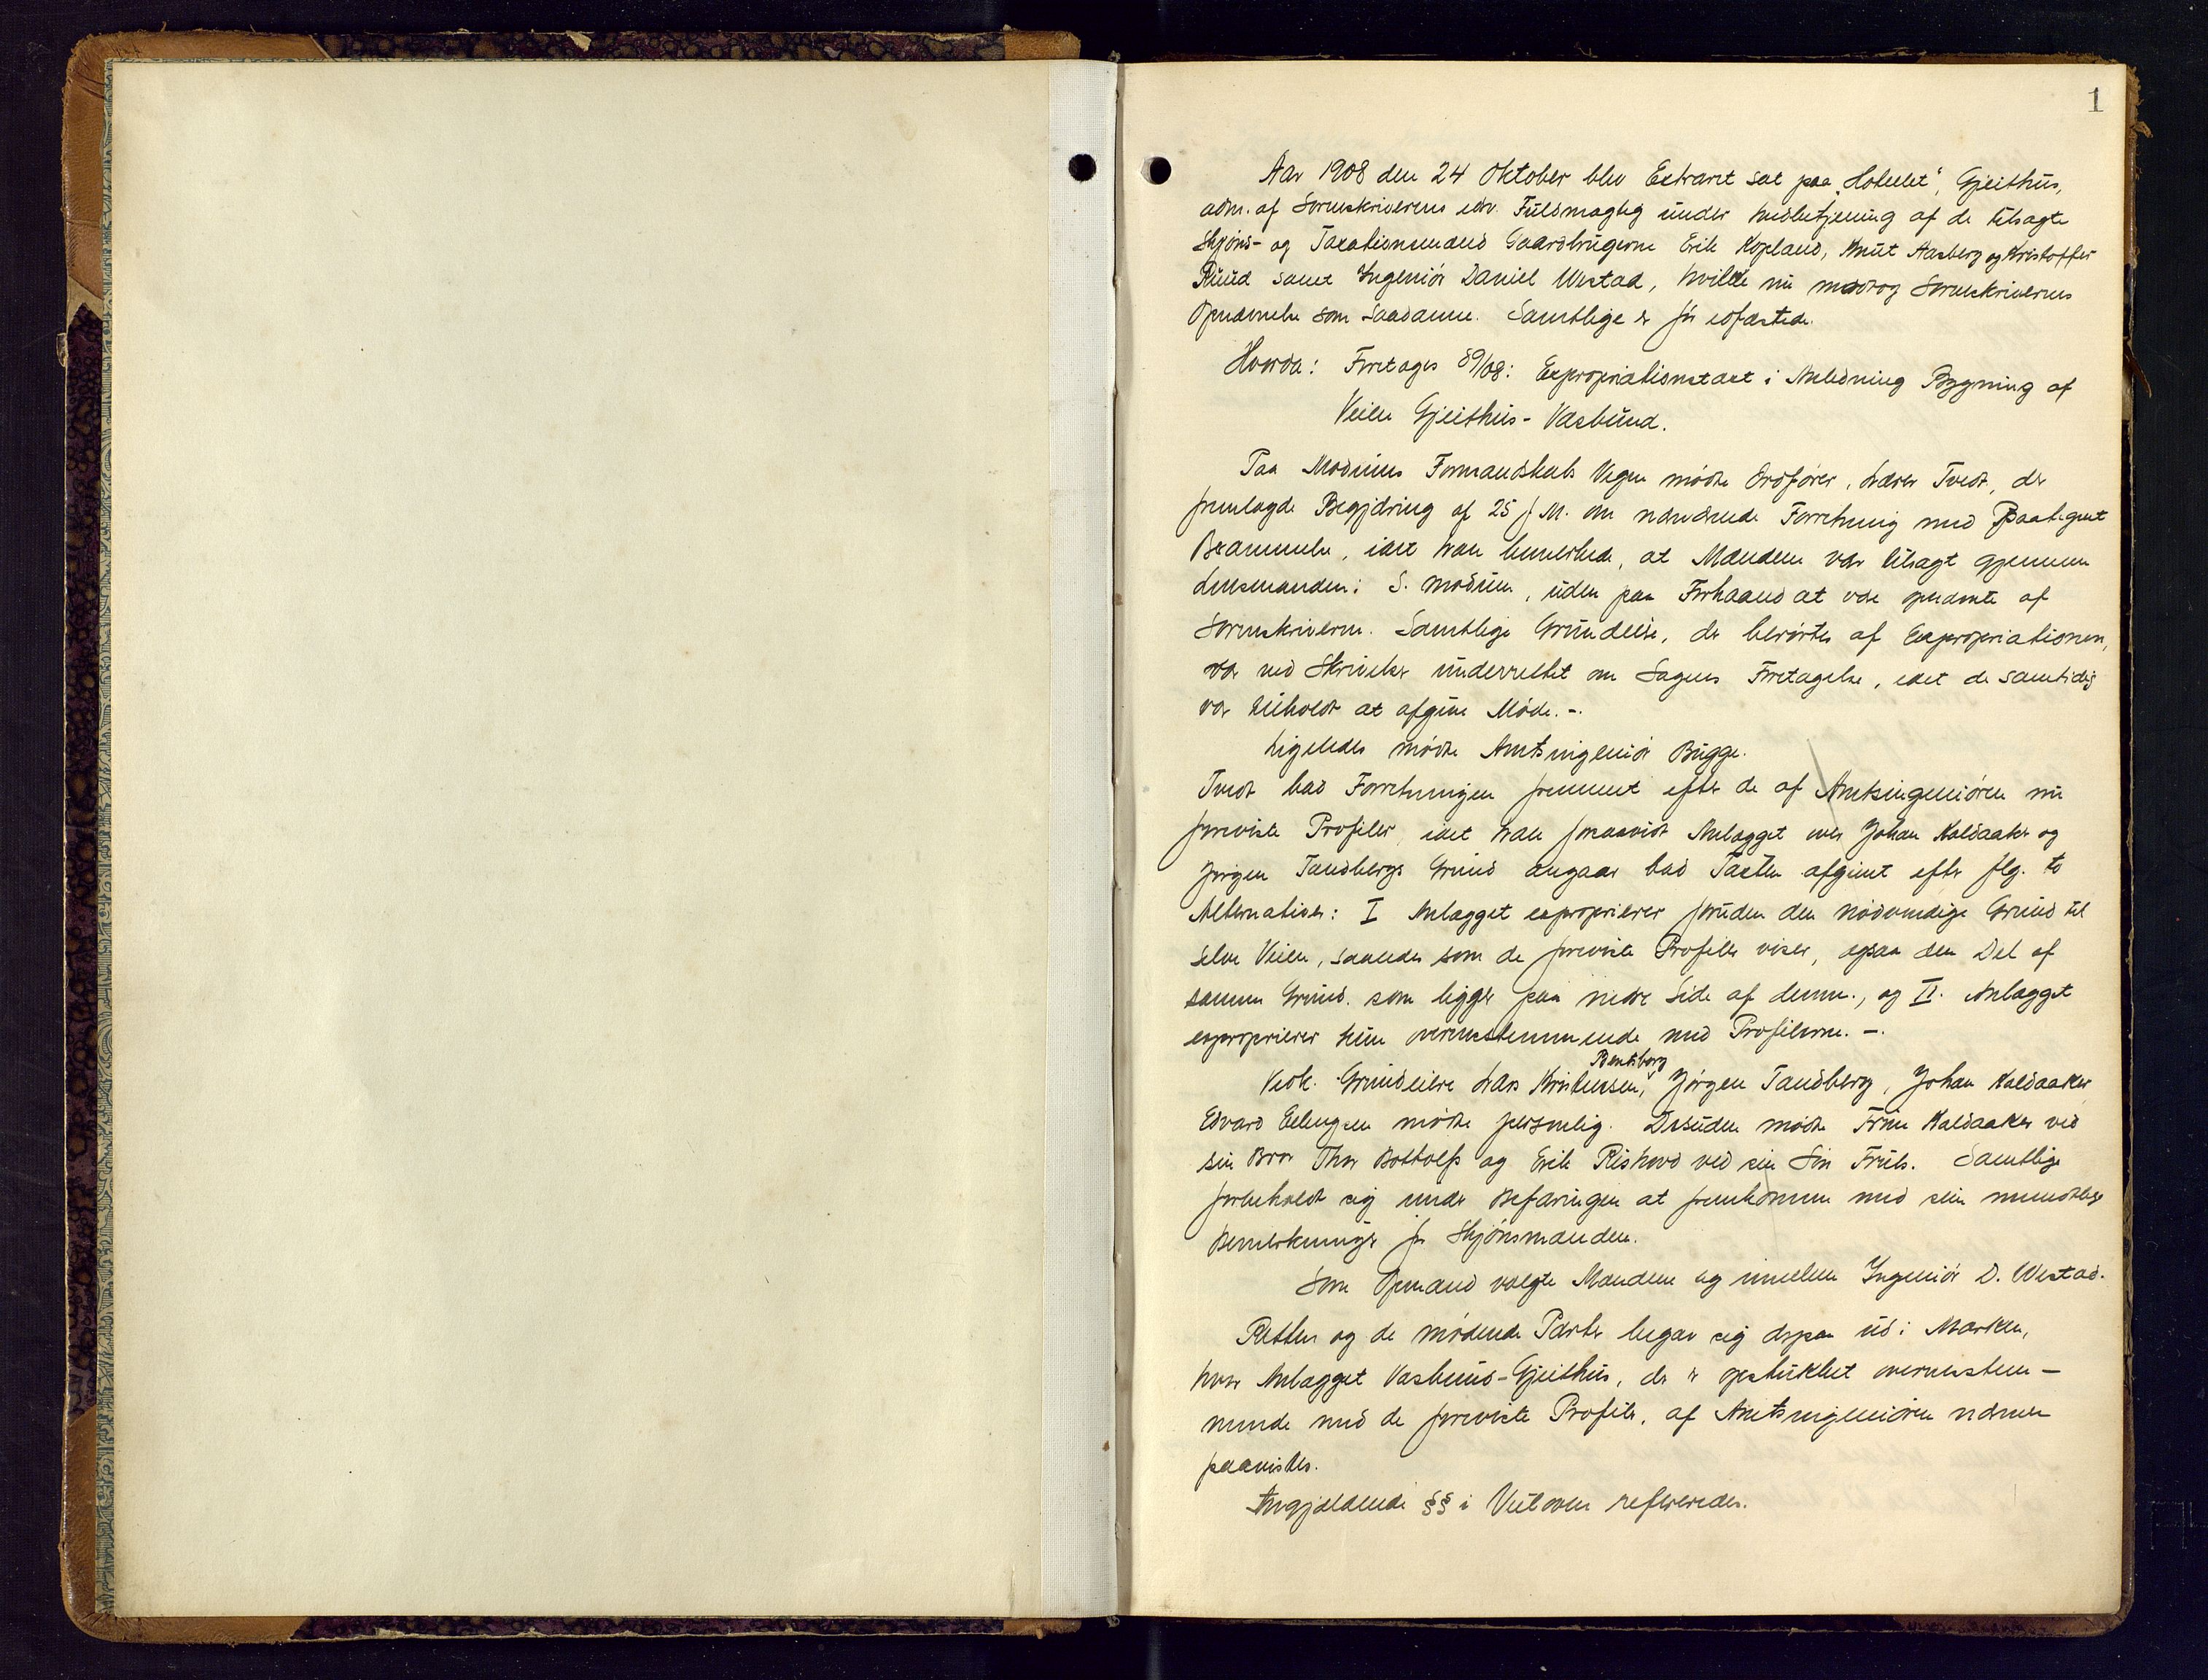 1
Aar 1908 den 24 Oktober blev Extraret sat paa "Hotellet", Gjeithus,
adm. af Sorenskriverens edv. Fuldmægtig under Medbetjening af de tilsagte
Skjøns- og Taxationsmænd Gaardbrugerne Erik Kopland, Knut Aasberg og Kristoffer
Ruud samt Ingeniør Daniel Westad, hvilke nu modtog Sorenskriverens
Opnævnelse som Saadanne. Samtlige er før edfæstede.
Hvorda: Foretages 89/08: Expropriationstaxt i Anledning Bygning af
Veien Gjeithus-Vasbund.
Paa Modums Formandskabs Vegne mødte Ordfører, Lærer Tvedt, der
fremlagde Begjæring af 25 f. M. om nævnte Forretning med Paategnet
Berammelse, idet han bemerkede, at Mændene var tilsagt gjennem
Lensmanden i S. Modum, uden paa Forhaand at være opnævnte af
Sorenskriveren. Samtlige Grundeiere, der berørtes af Expropriationen,
var ved Skrivelser underrettet om Sagens Foretagelse, idet de samtidig
var tilholdt at afgive Møde. -.
Ligeledes mødte Amtsingeniør Bugge.
Tvedt bad Forretningen fremmet efter de af Amtsingeniøren nu
foreviste Profiler, idet han forsaavidt Anlægget over Johan Kaldaaker og
Jørgen Tandbergs Grund angaar bad Taxten afgivet efter flg. to
Alternativer: I Anlægget exproprierer foruden den nødvendige Grund til
selve Veien, saaledes som de foreviste Profiler viser, ogsaa den Del af
samme Grund, som ligger paa nedre Side af denne, og II. Anlægget
exproprierer kun overensstemmende med Profilerne. -.
Vedk. Grundeiere Lars Kristensen, Bentsborg Jørgen Tandberg, Johan Kaldaaker
Edvard Ellingsen mødte personlig. Desuden mødte Frøken Kaldaaker ved
sin Bror Thor Bottolfs og Erik Riskovd ved sin Søn Fruls. Samtlige
forbeholdt sig under Befaringen at fremkomme med sine mundtlige
Bemerkninger for Skjønsmændene.
Som Opmand valgte Mændene sig imellem Ingeniør D. Westad.
Retten og de mødende Parter begav sig derpaa ud i Marken,
hvor Anlægget Vasbund-Gjeithus, der er opstukket overensstem-
mende med de foreviste Profiler, af Amtsingeniøren nærmere
paavistes.
Angjældende §§ i Veiloven refereredes.